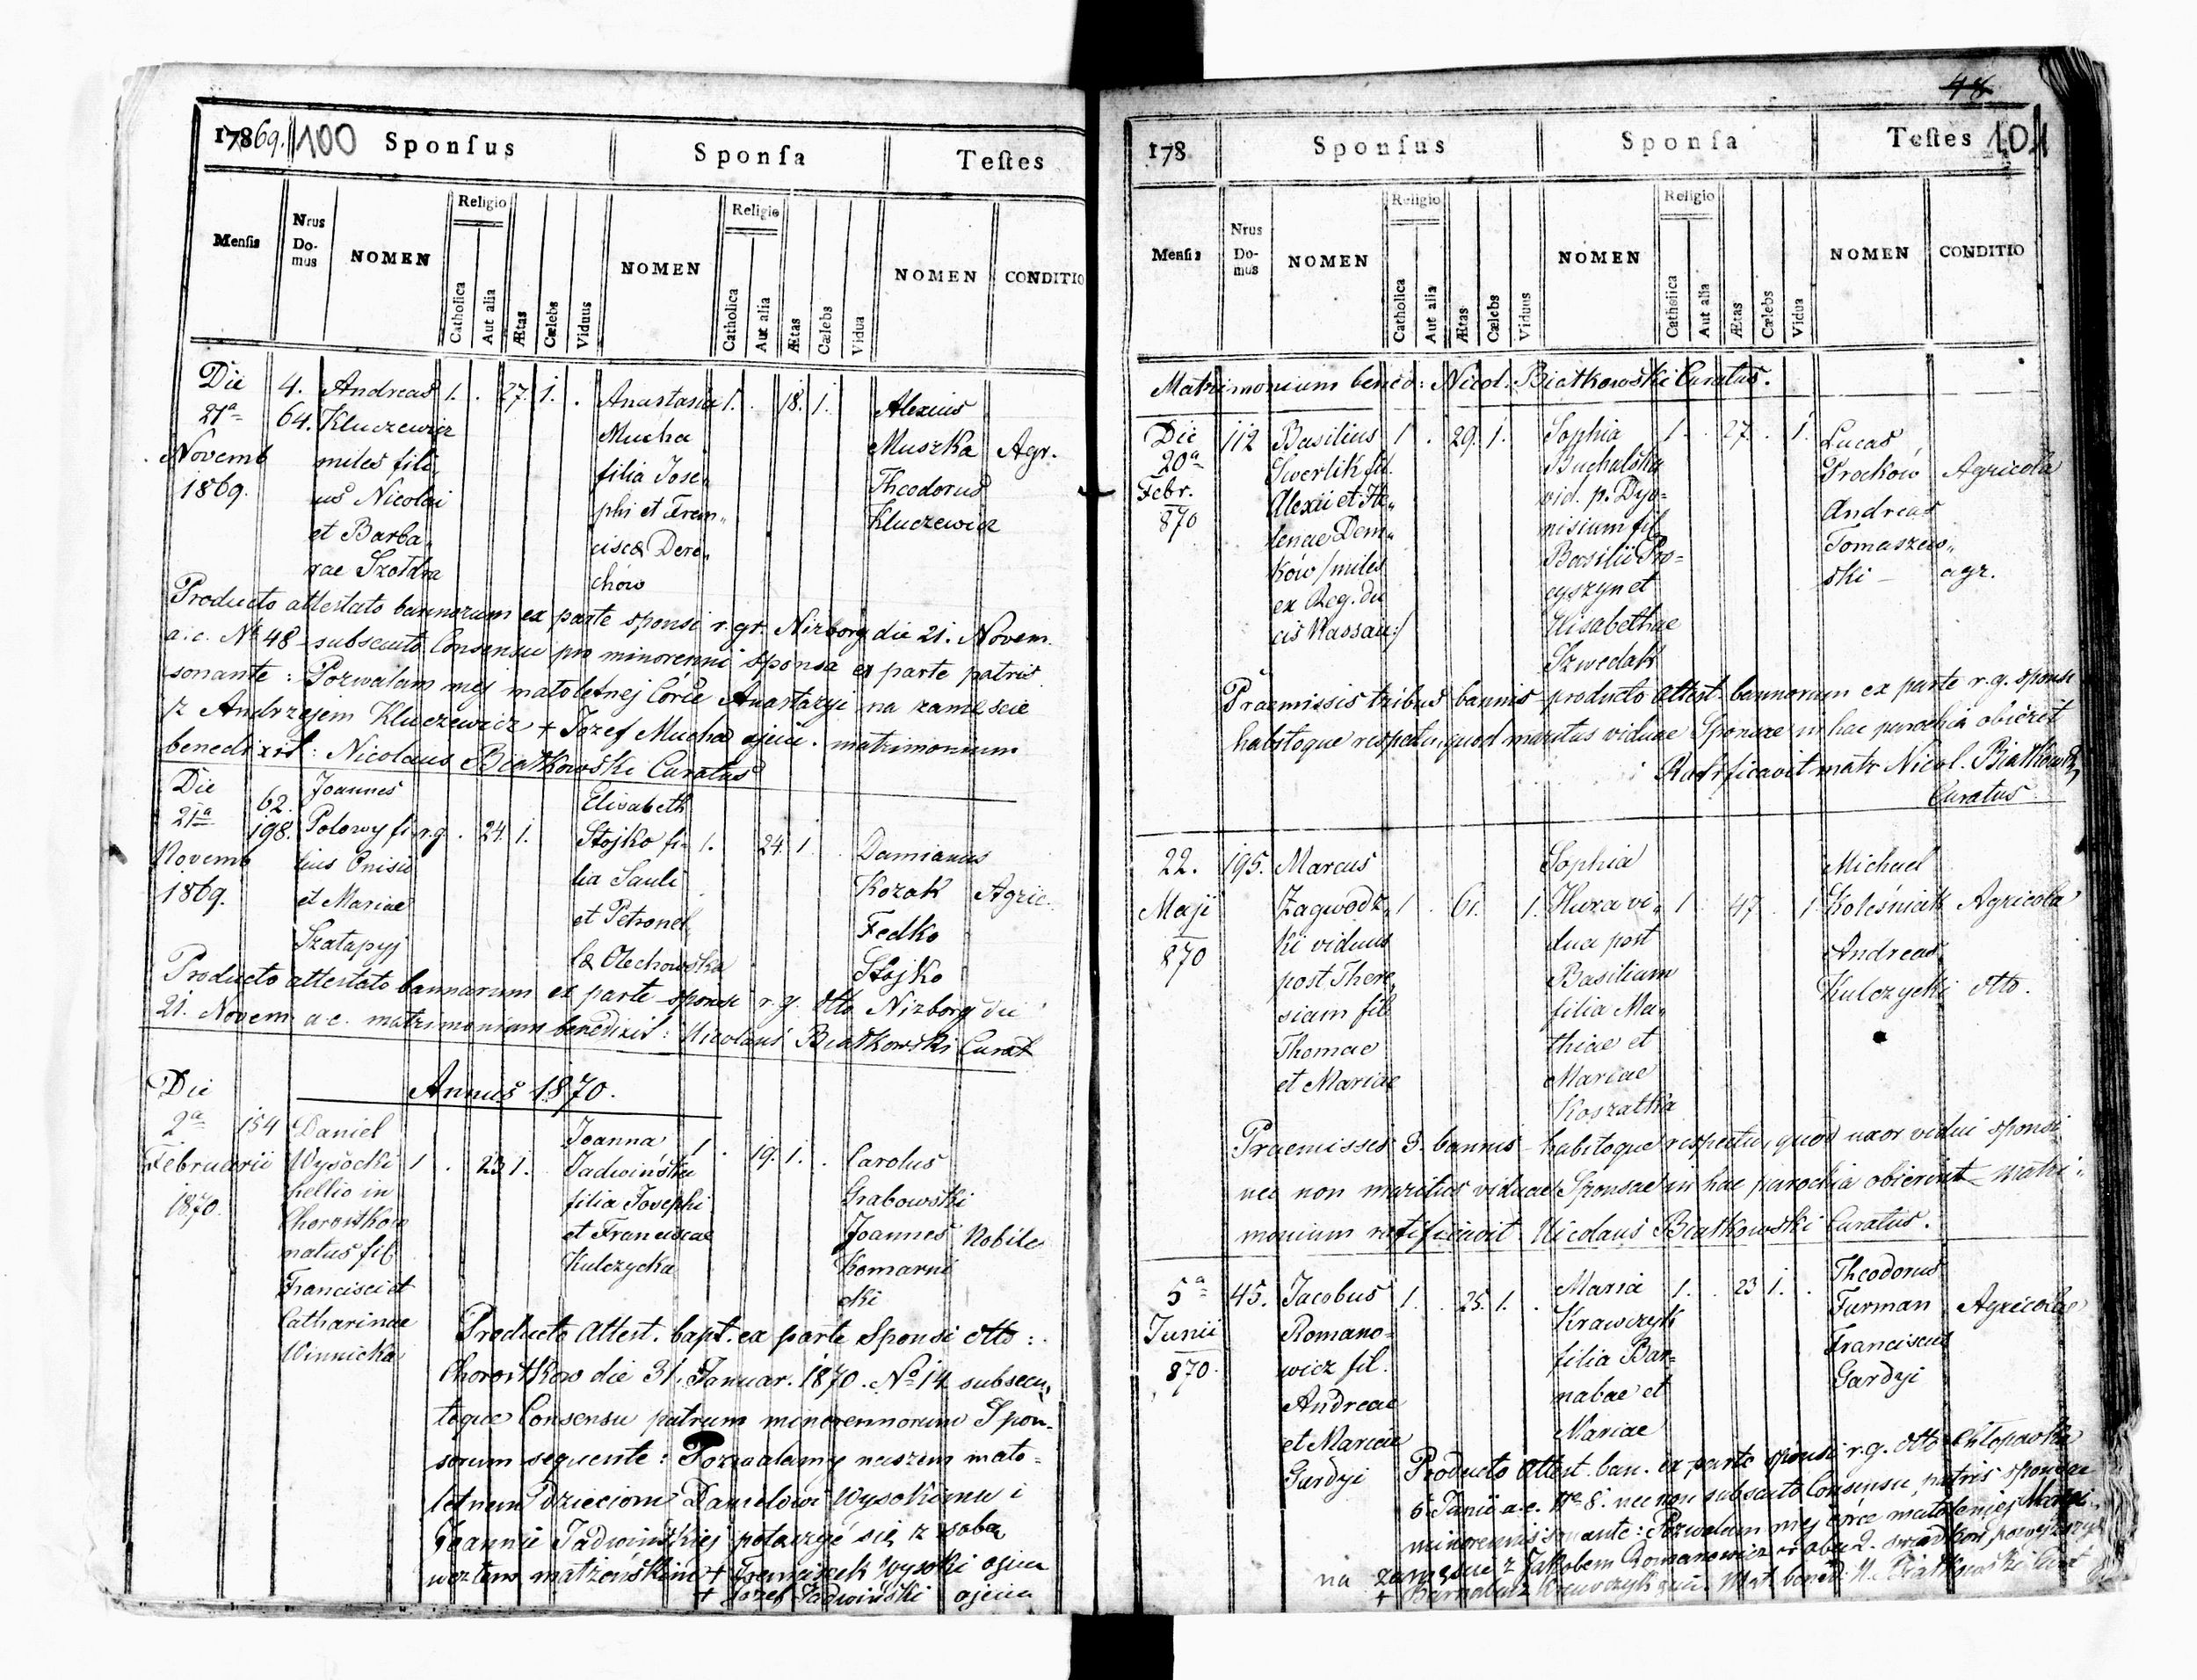 17869. 100 Sponſus Sponſa Teſtes
Menſis Nrus Do-mus NOMEN Religio Catholica Aut alia Ætas Cælebs Viduus NOMEN Religio Catholica Aut alia Ætas Cælebs Vidua NOMEN CONDITIO
Die 4. Andreas 1. . 27. 1. . Anastasia 1. . 18. 1. Alexius
21a 64. Kluczewicz Mucha Muszka Agr.
Novemb miles fili- filia Jose„ Theodorus
1869. us Nicolai phi et Fran„ Kluczewicz
et Barba„ ciscæ Dere„
rae Szołdra chów
Producto attestato bannorum ex parte sponsi r. gr. Nizborg die 21. Novem.
a. c. No 48 subsecuto Consensu pro minorenni sponsa ex parte patris
sonante: Pozwalam mej małoletnej Córce Anastazyi na zamęscie
z Andrzejem Kluczewicz + Jozef Mucha ojciec. matrimonium
benedixit: Nicolaus Białkowski Curatus
Die 62. Joannes Elisabeth
21a 198. Polowy fi- r.g. . 24. 1. Stojko fi- 1. 24. 1. Damianus
Novemb lius Onisii lia Sauli Kozak Agric.
1869. et Mariae et Petronel„ Fedko
Szatapyj læ Olechowska Stojko
Producto attestato bannorum ex parte sponsi r. g. otto Nizborg die
21. Novem a. c. matrimonium benedixit: Nicolaus Białkowski Curat
Die Annus 1870.
2a 154 Daniel Joanna
Februarii Wysocki 1 . 23 1. Jadwińska 1 . 19. 1. . Carolus
1870. hellio in filia Josephi Grabowski
Chorostkow et Franciscae Joannes Nobile
natus fil. Kulczycka Komarni
Francisci et cki
Catharinae
Winnicka
Producto Attest. bapt. ex parte Sponsi otto:
Chorostkow die 31. Januar. 1870. No 14 subsecu„
toque Consensu patrum minorennorum Spon-
sorum sequente: Pozwalamy naszem mało-
letnem dzieciom Danielowi Wysokiemu i
Joannie Jadwińskiej połączyć się z soba
weztem małżeńskim + Franciszek Wysoki ojciec
+ Jozef Jadwiński ojciec
48
178 Sponſus Sponſa Teſtes 101
Menſis Nrus Do-mus NOMEN Religio Catholica Aut alia Ætas Cælebs Viduus NOMEN Religio Catholica Aut alia Ætas Cælebs Vidua NOMEN CONDITIO
Matrimonium bened: Nicol. Białkowski Curatus.
Die 112 Basilius 1 . 29. 1. Sophia 1 . 27. . 1. Lucas
20a Buchalska Proćków Agricola
Febr. Alexii et He„ vid. p. Dyo- Andreas
870 lenae Dem„ nisium fil. Tomaszew„
kow /miles Basilii Pro- ski — agr.
ex Reg. du cyszyn et
cis Nassau:/ Elisabethae
Szwedak
Praemissis tribus bannis producto attest. bannorum ex parte r. g. sponsi
habitoque respectu, quod maritus viduae Sponsae in hac parochia obieret
Ratificavit matr Nicol. Białkowski,
Curatus
22. 195. Marcus Sophia Michael
Maji Zagwodz„ 1 . 61. 1. Huza vi„ 1 . 47. . 1 Koleśnicik Agricola
870 ki viduus dua post Andreas
post There„ Basilium Kulczycki otto.
siam fil filia Ma„
Thomae thiae et
et Mariae Mariae
Koszatka
Praemisses 3. bannis habitoque respectu, quod uxor vidui sponsi
nec non maritus viduae Sponsae in hac parochia obierint matri„
monium ratificavit Nicolaus Białkowski Curatus.
5a 45. Jacobus 1. . 25. 1. . Maria 1. . 23 1. . Theodorus
Junii Romano- Krawczyk Furman Agricolae
870. wicz fil. filia Bar- Franciscus
Andreae nabae et Gardyi
et Mariae Mariae
Gardyi Producto Attest. ban. ex parte sponsi r. g. otto Chłopówka
6 Junii a. c. No 8. nec non subsecuto Consensu patris sponsae
minorennis sonante: Pozwalam mej córce małoletniej Maryi
na zamęscie z Jakobem Romanowicz w obec 2. swiadkow powyższych
+ Barnabasz Krawczyk ojciec. Mat. bened: N. Białkowski Curat